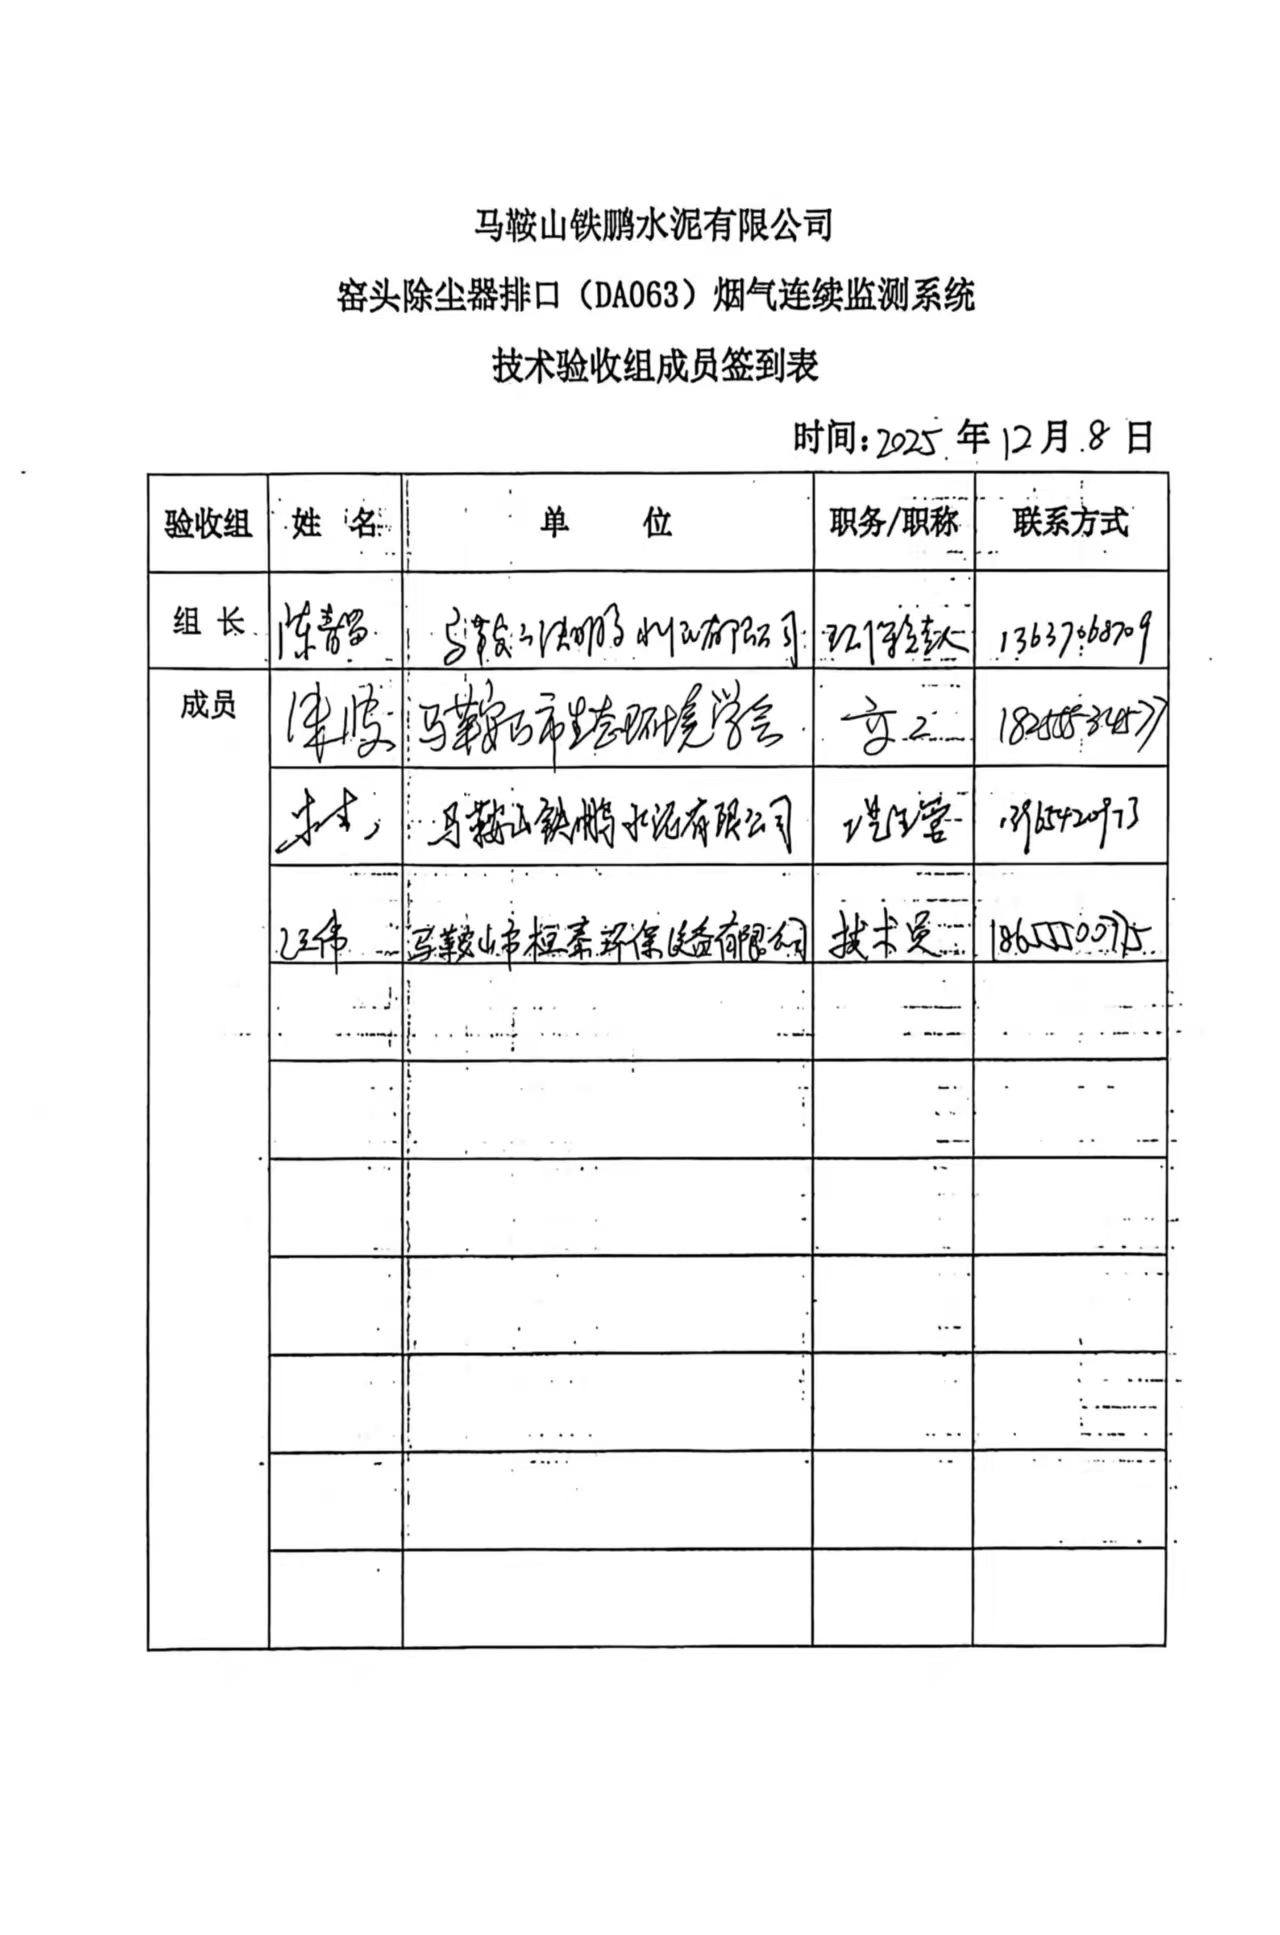 马鞍山铁鹏水泥有限公司
窑头除尘器排口（DA063）烟气连续监测系统
技术验收组成员签到表
时间：2025 年 12 月 8 日
验收组 姓 名 单 位 职务/职称 联系方式
组 长 马鞍山铁鹏水泥有限公司 13637068709
成员 马鞍山市生态环境学会 高工
马鞍山铁鹏水泥有限公司 13965420973
马鞍山市桓泰环保设备有限公司 技术员 18655500775